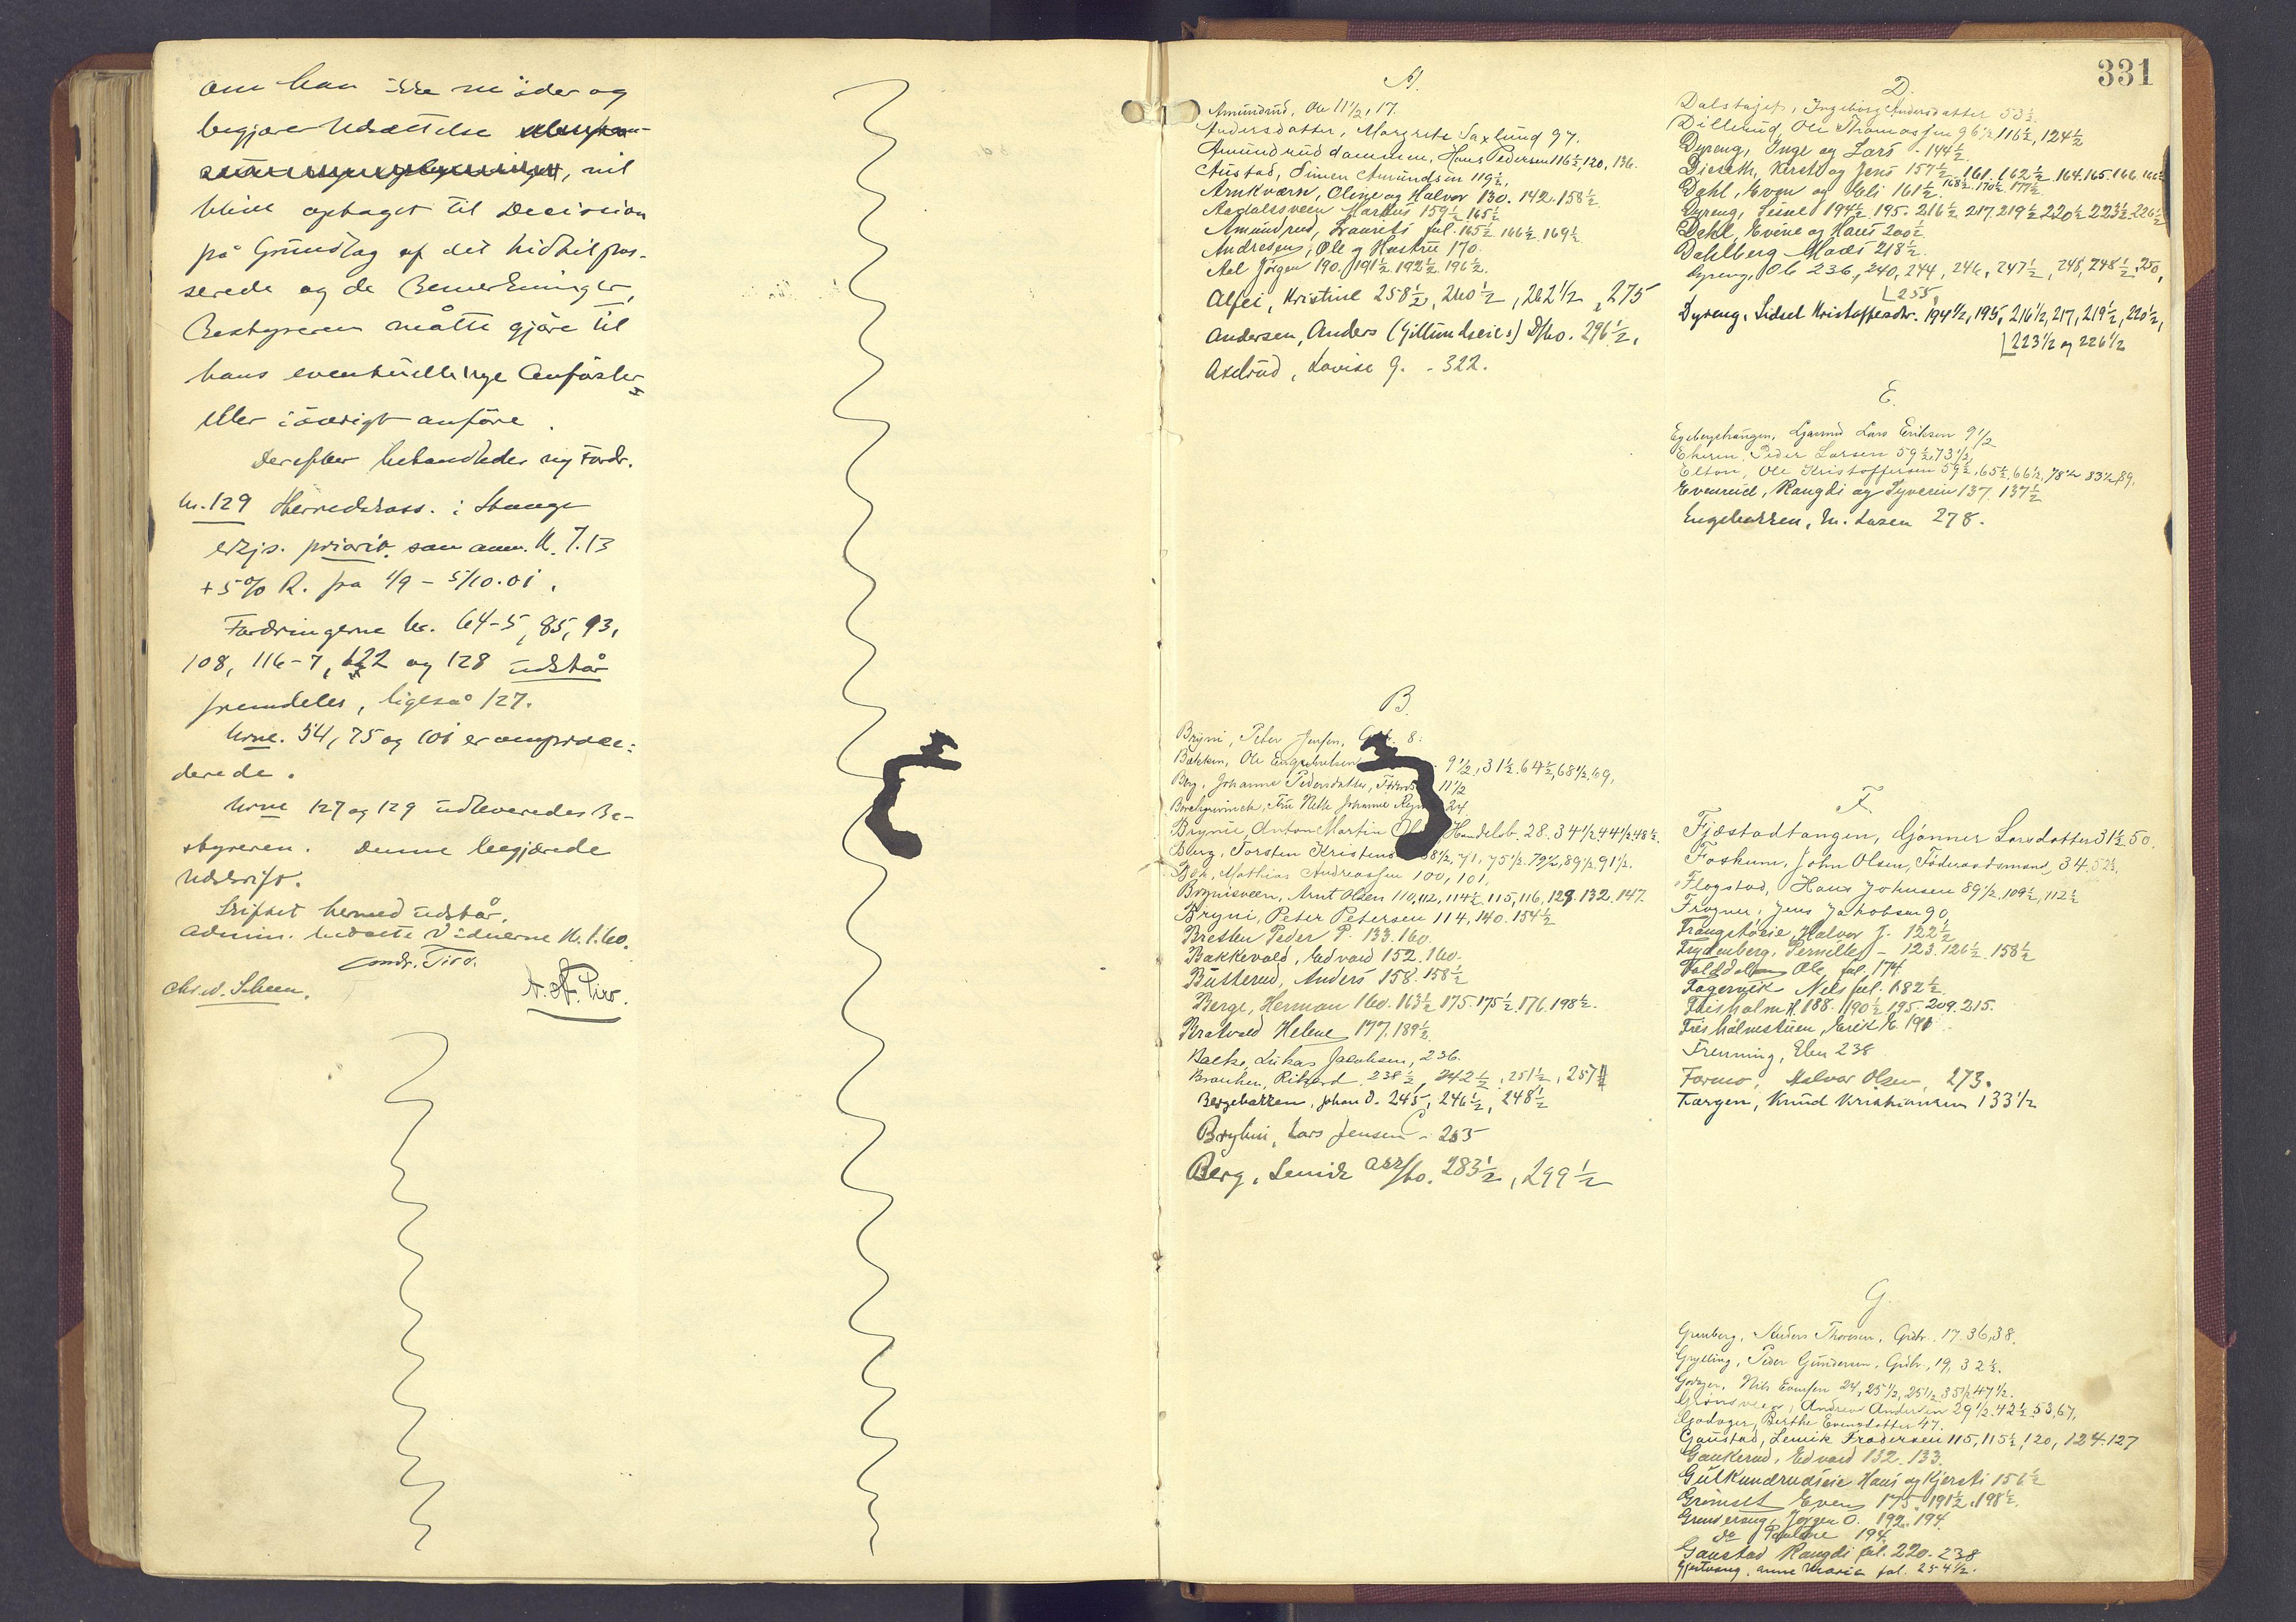 om han ikke møder og
begjærer Udsættelse
, vil
blive optaget til Decision
på Grundlag af det hidtil pas-
serede og de Bemerkninger,
Bestyreren måtte gjøre til
hans eventuelle nye Anførsler
eller iøvrigt anføre.
Derefter behandledes ny Fordr.
Nr. 129 Herredskass. i Stange
erkj. s. priorit. som anm. Kr. 7.13
+ 5% R. fra 1/9 - 5/10.01.
Fordringerne Nr. 64-5, 85, 93,
108, 116-7, 122 og 128 udstår
fremdeles, ligeså 127.
Nrne. 54, 75 og 101 er omproce-
derede.
Nrne 127 og 129 udleveredes Be-
styreren. Denne begjærede
Udskrift.
Skiftet hermed udstår.
Admin. betalte Vidnerne Kr. 1.60.
Andr. Tiro.
Chr. W. Scheen.
331
A.
Amundrud, Ole 11 1/2, 17.
Andersdatter, Margrete Saxlund 97.
Amundruddammen, Hans Pedersen 116 1/2, 120, 136.
Austad, Simen Amundsen 119 1/2.
Arnkværn, Oline og Halvor 130. 142. 158 1/2.
Aadalssveen Markus 159 1/2 165 1/2
Amundrud, Laurits fol. 165 1/2. 166 1/2. 169 1/2
Andresen, Ole og Hustru 170.
Aal Jørgen 190. 191 1/2. 192 1/2. 196 1/2.
Alfei, Kristine 258 1/2, 260 1/2, 262 1/2, 275
Andersen, Anders (Gillundseie) D/bo. 296 1/2.
Axelrud, Lovise G. - 322.
B.
Bryni, Peter Jensen, 8.
Bakken, Ole Engebretsen 9 1/2, 31 1/2, 64 1/2, 68 1/2, 69.
Berg, Johanne Pedersdatter, 11 1/2
Frue Nette Johanne 24
Brynie, Anton Martin Handelsb. 28. 34 1/2. 44 1/2. 48 1/2.
Berg, Torsten Kristens 68 1/2, 71, 75 1/2. 79 1/2, 89 1/2. 91 1/2.
Mathias Andreassen 100, 101.
Brynisveen, Arnt Olsen 110, 112, 114 1/2, 115, 116, 129. 132. 147.
Bryni, Peter Petersen 114, 140. 154 1/2
Bretten Peder P. 133. 160.
Bakkevold, Edvard 152. 160.
Butterud, Anders 158. 158 1/2
Berge, Herman 160. 163 1/2 175. 175 1/2. 176. 198 1/2.
Bratvold Helene 177. 189 1/2.
Bakke, Lukas Jacobsen, 236.
Brauhen, Rikard 238 1/2, 242 1/2, 251 1/2, 257
Bergebakken, Johan O. 245, 246 1/2, 248 1/2
Bryhni, Lars Jensen - 265
Berg, Lemik arr/bo. 283 1/2, 299 1/2
D.
Ingeborg Andersdatter 53 1/2.
Dillerud, Ole Thomassen 96 1/2 116 1/2, 124 1/2
Dyreng, Inge og Lars - 144 1/2.
Dieseth, Kersti og Jens 157 1/2. 161. 162 1/2. 164. 165. 166. 166 1/2
168 1/2. 170 1/2. 177 1/2
Dahl, Even og Eli 161 1/2.
Dyreng, Sidsel 194 1/2. 195. 216 1/2 217, 219 1/2 220 1/2 223 1/2 226 1/2
Dahl, Evine og Hans 200 1/2
Dahlberg Mads 218 1/2.
Dyreng, Ole 236, 240, 244, 246, 247 1/2, 248, 248 1/2, 250,
255,
Dyreng, Sidsel Kristoffersdtr. 194 1/2, 195, 216 1/2, 217, 219 1/2, 220 1/2,
223 1/2 og 226 1/2
E.
Egebergshaugen, Gaarmd Lars Eriksen 9 1/2
Ekeren, Peder Larsen 59 1/2, 73 1/2,
Elton, Ole Kristoffersen 59 1/2, 65 1/2, 66 1/2, 78 1/2 83 1/2, 89.
Evenrud, Rangdi og Syverin 137. 137 1/2
Engebakken, M. Larsen 278.
F.
Fjæstadtangen, Gjønner Larsdatter 31 1/2. 50.
Foskum, John Olsen, Føderaadsmand, 34. 52 1/2.
Flagstad, Hans Johnsen 89 1/2, 109 1/2, 112 1/2
Frogner, Jens Jakobsen 90,
Frangstøeie, Halvor J. 122 1/2
Frydenberg, Pernille - 123. 126 1/2. 158 1/2
Ole, fol. 174.
Fagervik Nils fol. 182 1/2.
Frisholm H. 188. 190 1/2. 195. 209. 215.
Frisholmstuen, Erik E. 191
Frenning, Elen 238
Formo, Halvor Olsen, 273.
Færgen, Knud Kristiansen 133 1/2
G.
Grønberg, Anders Thoresen, Gdbr. 17. 36, 38.
Grylling, Peder Gundersen, Gdbr., 19, 32 1/2.
Godager, Nils Evensen 24, 25 1/2, 25 1/2. 35 1/2 47 1/2.
Grønsveen, Andrea Andersen 29 1/2. 42 1/2. 53, 67,
Godager, Berthe Evensdatter 47.
Gaustad, Lemik Fredersen 115, 115 1/2, 120, 124. 127
Gaukerud, Edvard 132. 133.
Gulkundrudseie Hans og Kjersti 156 1/2
Grimset Even 175. 191 1/2. 198 1/2.
Grundseraug, Jørgen O. 192. 194.
do Pauline 194.
Gaustad Rangdi fol. 220. 238
Gjestvang, Anne Marie fol. 254 1/2.